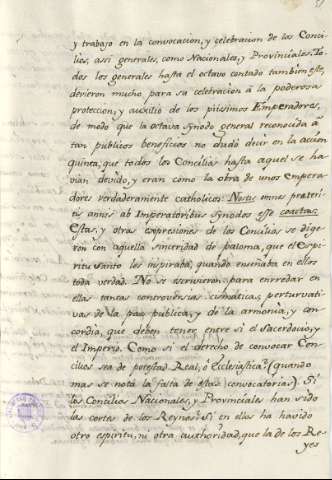 y trabajo en la convocacion, y celebracion de los Conci-
lios, assi generales, como Nacionales, y Provinciales. To-
dos los generales hasta el octavo contado tambien este,
devieron mucho para su celebracion à la poderosa
proteccion, y auxilio de los piissimos Emperadores,
de modo que la octava Synodo general reconocida à
tan publicos beneficios no dudó decir en la accion
quinta, que todos los Concilios hasta aquel se ha-
vian devido, y eran como la obra de unos empera-
dores verdaderamente catholicos: omnes præteri-
tis annis ab Imperatoribus Synodos esse coactas.
Estas, y otras expresiones de los Concilios se dige-
ron con aquella sinceridad de paloma, que el Espi-
ritu Santo les inspiraba, quando enseñaba en ellos
toda verdad. No se escrivieron para enrredar en
ellas tantas controversias cismaticas, perturvati-
vas de la paz publica, y de la armonia, y con-
cordia, que deben tener entre si el Sacerdocio, y
el Imperio. Como si el derecho de convocar Con-
cilios sea de potestad Real, ó Ecclesiastica? (quando
mas se nota la falta de estas convocatorias). Si
los Concilios Nacionales, y Provinciales han sido
las cortes de los Reynos? Si en ellos ha havido
otro espiritu, ni otra authoridad, que la de los Re-
yes